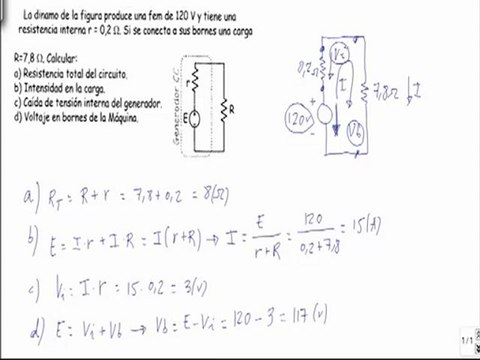 La dinamo de la figura produce una fem de 120 V y tiene una
resistencia interna r = 0,2 Ω. Si se conecta a sus bornes una carga
R=7,8 Ω, Calcular:
a) Resistencia total del circuito.
b) Intensidad en la carga.
c) Caída de tensión interna del generador.
d) Voltaje en bornes de la Máquina.
Generador CC
r
E
R
0,2Ω
Vi
I
7,8Ω
I
120V
+
-
Vb
a) R_T = R + r = 7,8 + 0,2 = 8(Ω)
b) E = I·r + I R = I(r+R) → I = E/(r+R) = 120/(0,2+7,8) = 15(A)
c) Vi = I·r = 15·0,2 = 3(V)
d) E = Vi + Vb → Vb = E - Vi = 120 - 3 = 117(V)
1/1